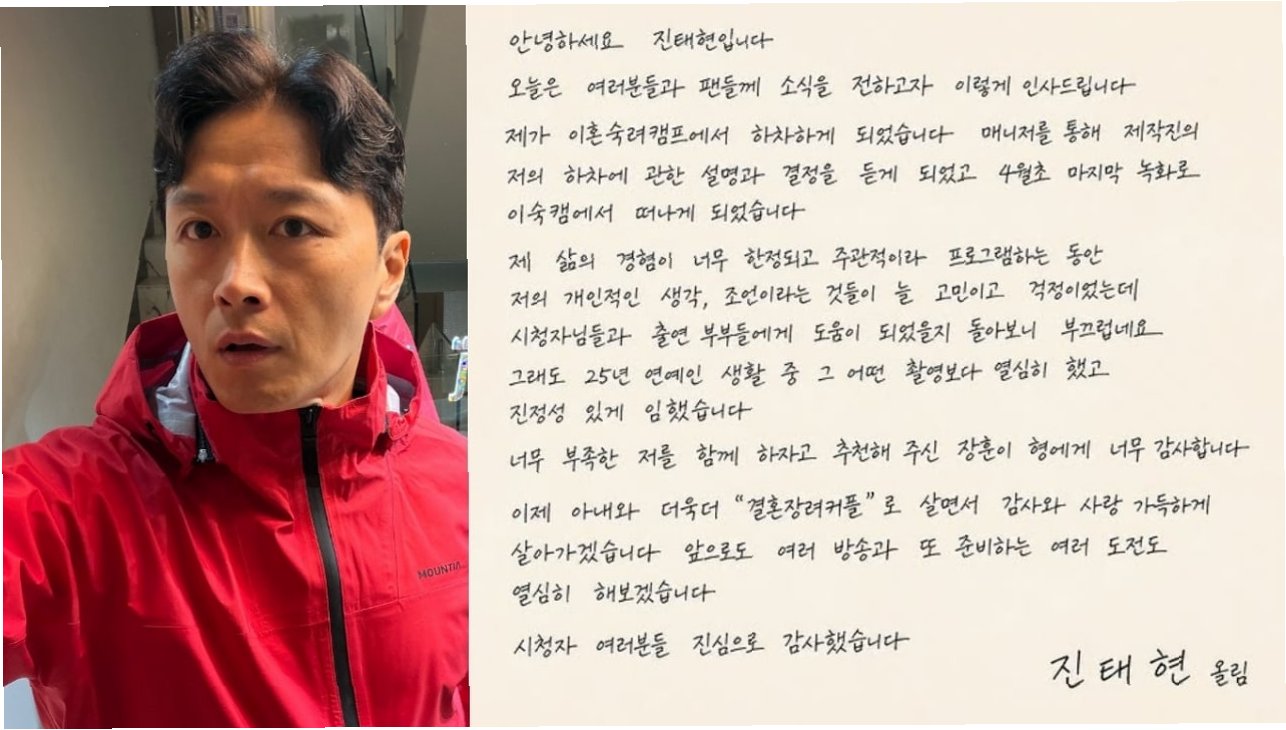 안녕하세요 진태현입니다
오늘은 여러분들과 팬들께 소식을 전하고자 이렇게 인사드립니다
제가 이혼숙려캠프에서 하차하게 되었습니다 매니저를 통해 제작진의
저의 하차에 관한 설명과 결정을 듣게 되었고 4월초 마지막 녹화로
이숙캠에서 떠나게 되었습니다
제 삶의 경험이 너무 한정되고 주관적이라 프로그램하는 동안
저의 개인적인 생각, 조언이라는 것들이 늘 고민이고 걱정이었는데
시청자님들과 출연 부부들에게 도움이 되었을지 돌아보니 부끄럽네요
그래도 25년 연예인 생활 중 그 어떤 촬영보다 열심히 했고
진정성 있게 임했습니다
너무 부족한 저를 함께 하자고 추천해 주신 장훈이 형에게 너무 감사합니다
이제 아내와 더욱더 "결혼장려커플"로 살면서 감사와 사랑 가득하게
살아가겠습니다 앞으로도 여러 방송과 또 준비하는 여러 도전도
열심히 해보겠습니다
시청자 여러분들 진심으로 감사했습니다
진태현 올림
MOUNTIA